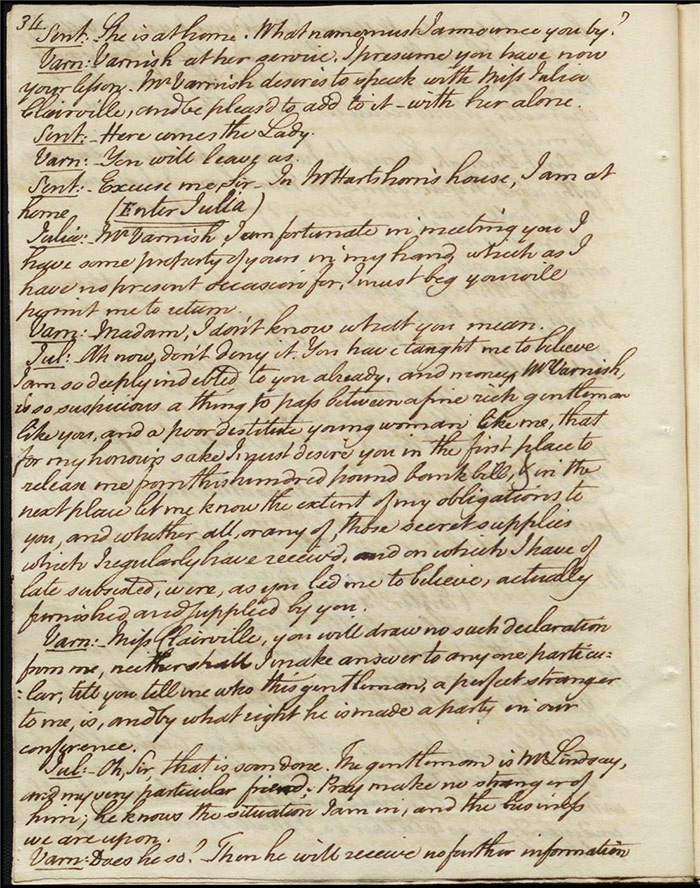 34
Sent:- She is at home. What name must I announce you by?
Varn: Varnish at her service. I presume you have now
your lesson. Mr Varnish desires to speak with Miss Julia
Clairville, and be pleas'd to add to it - with her alone.
Sent:- Here comes the Lady.
Varn:- You will leave us.
Sent:- Excuse me, Sir - In Mr Hartshorn's house, I am at
home (Enter Julia)
Julia:- Mr Varnish I am fortunate in meeting you I
have some property of yours in my hand, which as I
have no present occasion for, I must beg you will
permit me to return.
Varn:- Madam, I don't know what you mean.
Jul:- Oh now, don't deny it. You have taught me to believe
I am so deeply indebted to you already, and money, Mr Varnish,
is so suspicious a thing to pass between a fine rich gentleman
like you, and a poor destitute young woman like me, that
for my honour's sake I must desire you in the first place to
release me from this hundred pound bank bill, & in the
next place let me know the extent of my obligations to
you, and whether all, or any of, those secret supplies
which I regularly have received, and on which I have of
late subsisted, were, as you led me to believe, actually
furnished and supplied by you.
Varn:- Miss Clairville, you will draw no such declaration
from me, neither shall I make answer to any one particu-
-lar, till you tell me who this gentleman, a perfect stranger
to me, is, and by what right he is made a party in our
conference.
Jul:- Oh, Sir, that is soon done. The gentleman is Mr Lindsay,
and my very particular friend. Pray make no stranger of
him; he knows the situation I am in, and the business
we are upon.
Varn: Does he so? Then he will receive no further information